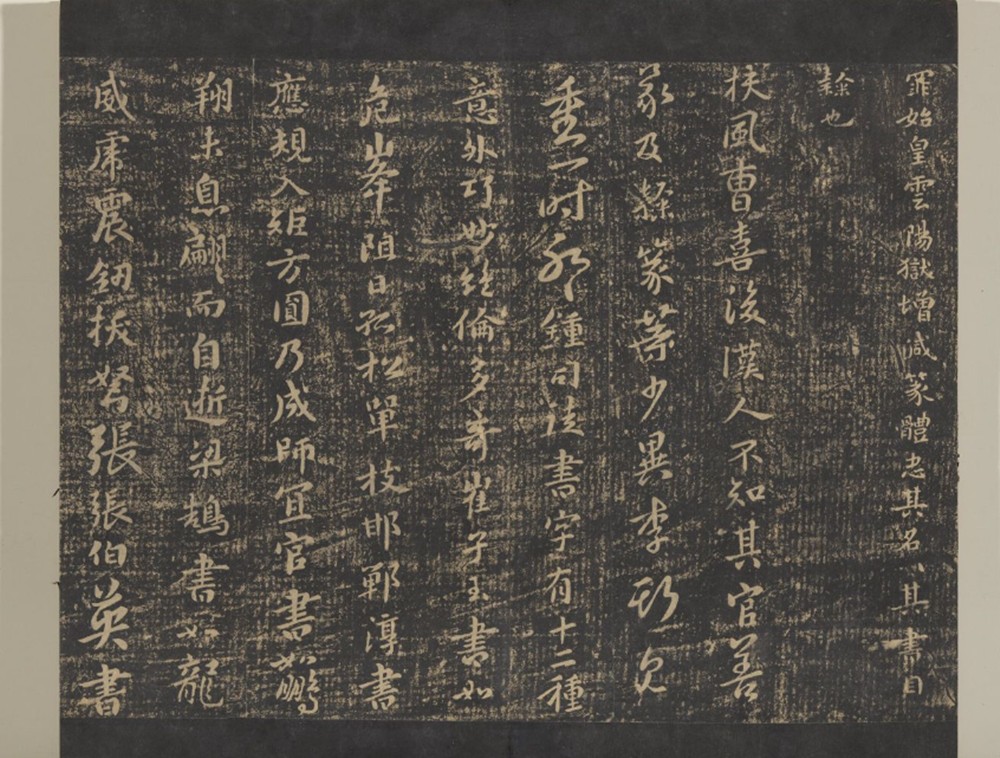 罪始皇雲陽獄增減篆體忠其名、其書曰
隸也
扶風曹喜後漢人不知其官善
篆及隸篆等少異李斯見
重一時鍾司徒書字有十二種
意外巧妙絶倫多奇崔子玉書如
危峯阻日孤松單枝邯鄲淳書
應規入矩方圓乃成師宜官書如鵬
翔未息翩〻而自逝梁鵠書如龍
威虎震劒拔弩張張伯英書